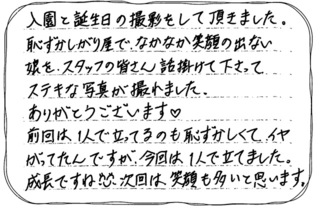 入園と誕生日の撮影をして頂きました。
恥ずかしがり屋で、なかなか笑顔の出ない
娘を、スタッフの皆さん話掛けて下さって
ステキな写真が撮れました。
ありがとうございます♡
前回は1人で立ってるのも恥ずかしくて、イヤ
がってたんですが、今回は1人で立てました。
成長ですね 次回は、笑顔も多いと思います。